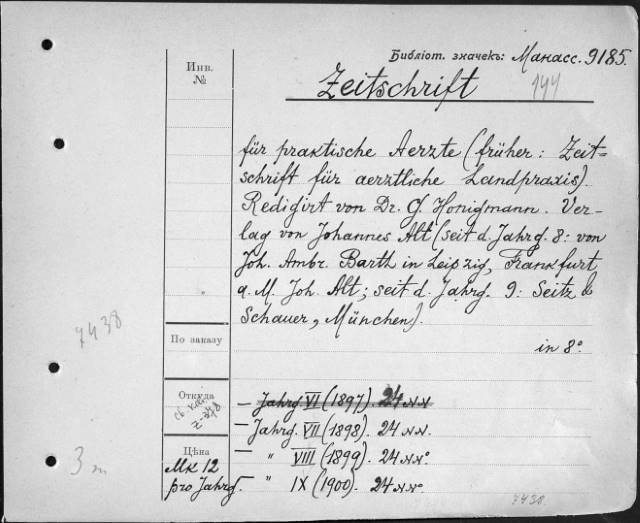 Библіот. значекъ: Манасс. 9185.
Инв.
№
Zeitschrift
144
für praktische Aerzte (früher: Zeit=
schrift für aerztliche Landpraxis).
Redigirt von Dr. G. Honigmann. Ver-
lag von Johannes Alt (seit d. Jahrg. 8: von
Joh. Ambr. Barth in Leipzig, Frankfurt
a. M. Joh. Alt; seit d. Jahrg. 9: Seitz &
Schauer, München).
in 8°.
7438
По заказу
Откуда
— Jahrg. VI (1897). 24 NN
— Jahrg. VII (1898). 24 NN.
— " VIII (1899). 24 NN°.
— " IX (1900). 24 NN°.
Цѣна
Mk 12
pro Jahrg.
3 m
7438